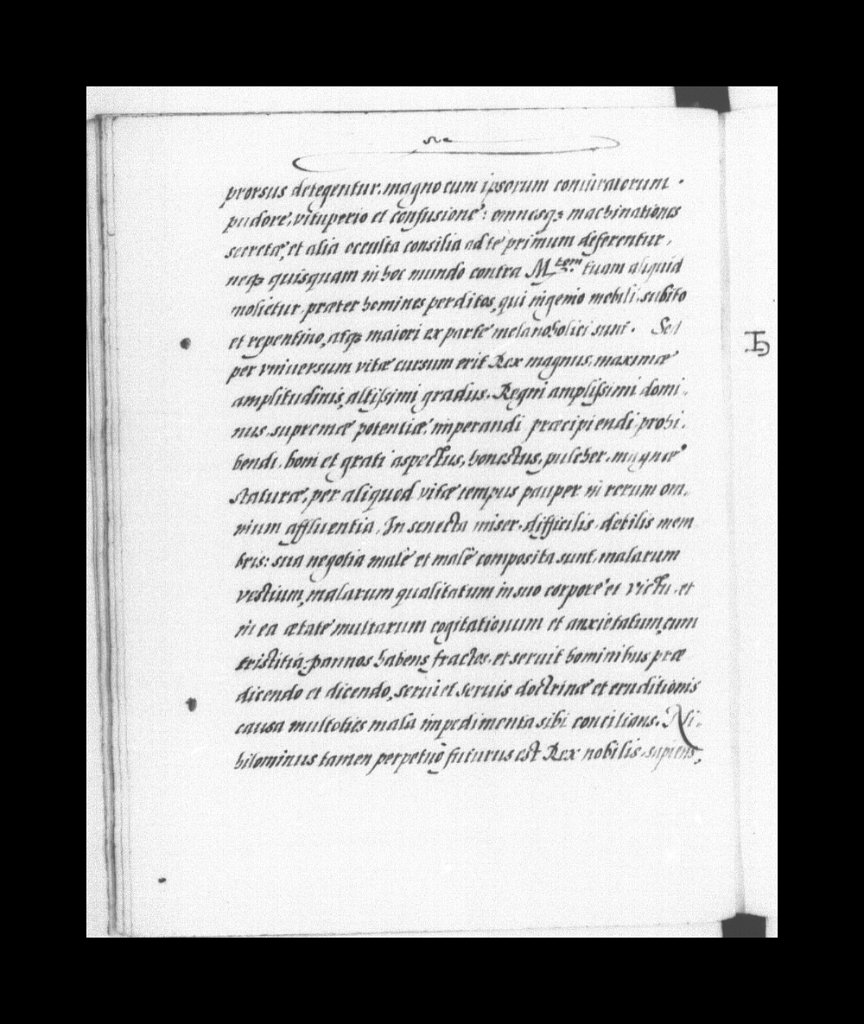 prorsus detegentur, magno cum ipsorum coniuratorum
pudore, vituperio et confusione: omnesq; machinationes
secretæ, et alia occulta consilia ad te primum deferentur,
neq; quisquam in hoc mundo contra M.tem tuam aliquid
molietur, præter homines perditos, qui ingenio mobili, subito
et repentino, atq; maiori ex parte melancholici sunt. Sed
per vniuersum vitæ cursum erit Rex magnus, maximæ
amplitudinis, altissimi gradus. Regni amplissimi domi-
nus, supremæ potentiæ imperandi præcipiendi prohi-
bendi, boni et grati aspectus, honestus, pulcher, magnæ
staturæ, per aliquod vitæ tempus pauper in rerum om-
nium affluentia. In senecta miser, difficilis, debilis mem
bris: sua negotia male et male composita sunt, malarum
vestium, malarum qualitatum in suo corpore et victu, et
in ea ætate multarum cogitationum et anxietatum, cum
tristitia, pannos habens fractos, et seruit hominibus præ
dicendo et dicendo, seruiet seruis doctrinæ et eruditionis
causa multoties mala impedimenta sibi concilians. Ni-
hilominus tamen perpetuo futurus est Rex nobilis, sapiens,